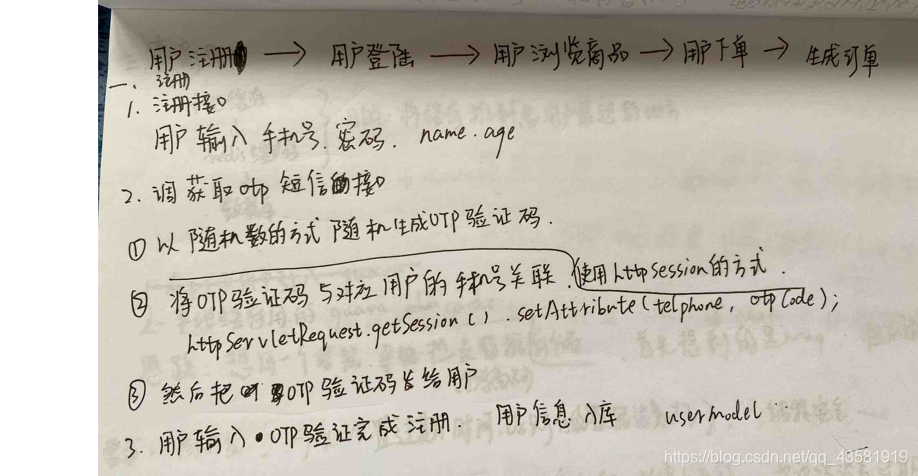 用户注册 → 用户登陆 → 用户浏览商品 → 用户下单 → 生成订单
一、注册
1. 注册接口
用户输入手机号、密码、name、age
2. 调获取otp短信的接口
① 以随机数的方式随机生成OTP验证码.
② 将OTP验证码与对应用户的手机号关联, 使用httpsession的方式.
httpServletRequest.getSession().setAttribute(telphone, otpCode);
③ 然后把OTP验证码发给用户
3. 用户输入OTP验证完成注册. 用户信息入库 usermodel
https://blog.csdn.net/qq_43581919